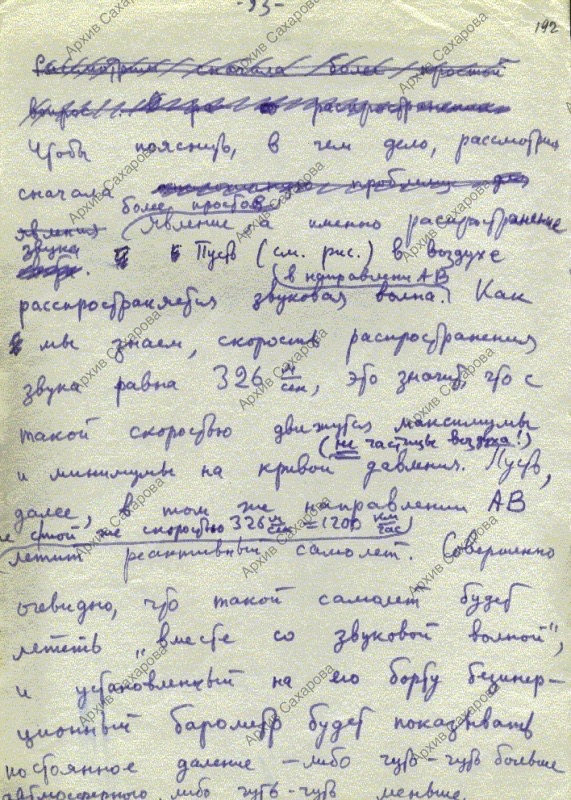 -93-
192
Рассмотрим сначала более простой
вопрос. о распространении
Чтобы пояснить, в чем дело, рассмотрим
сначала
более простое
явления явление, а именно распространение
звука. Пусть (см. рис.) в воздухе
(в направлении АВ
распространяется звуковая волна. Как
мы знаем, скорость распространения
звука равна 326 м/сек, это значит, что с
такой скоростью движутся максимумы
(не частицы воздуха!)
и минимумы на кривой давления. Пусть,
далее, в том же направлении АВ
с той же скоростью 326 м/сек = 1200 км/час)
летит реактивный самолет. Совершенно
очевидно, что такой самолет будет
лететь „вместе со звуковой волной",
и установленный на его борту безинер-
ционный барометр будет показывать
постоянное давление – либо чуть-чуть больше
атмосферного, либо чуть-чуть меньше.
Архив Сахарова